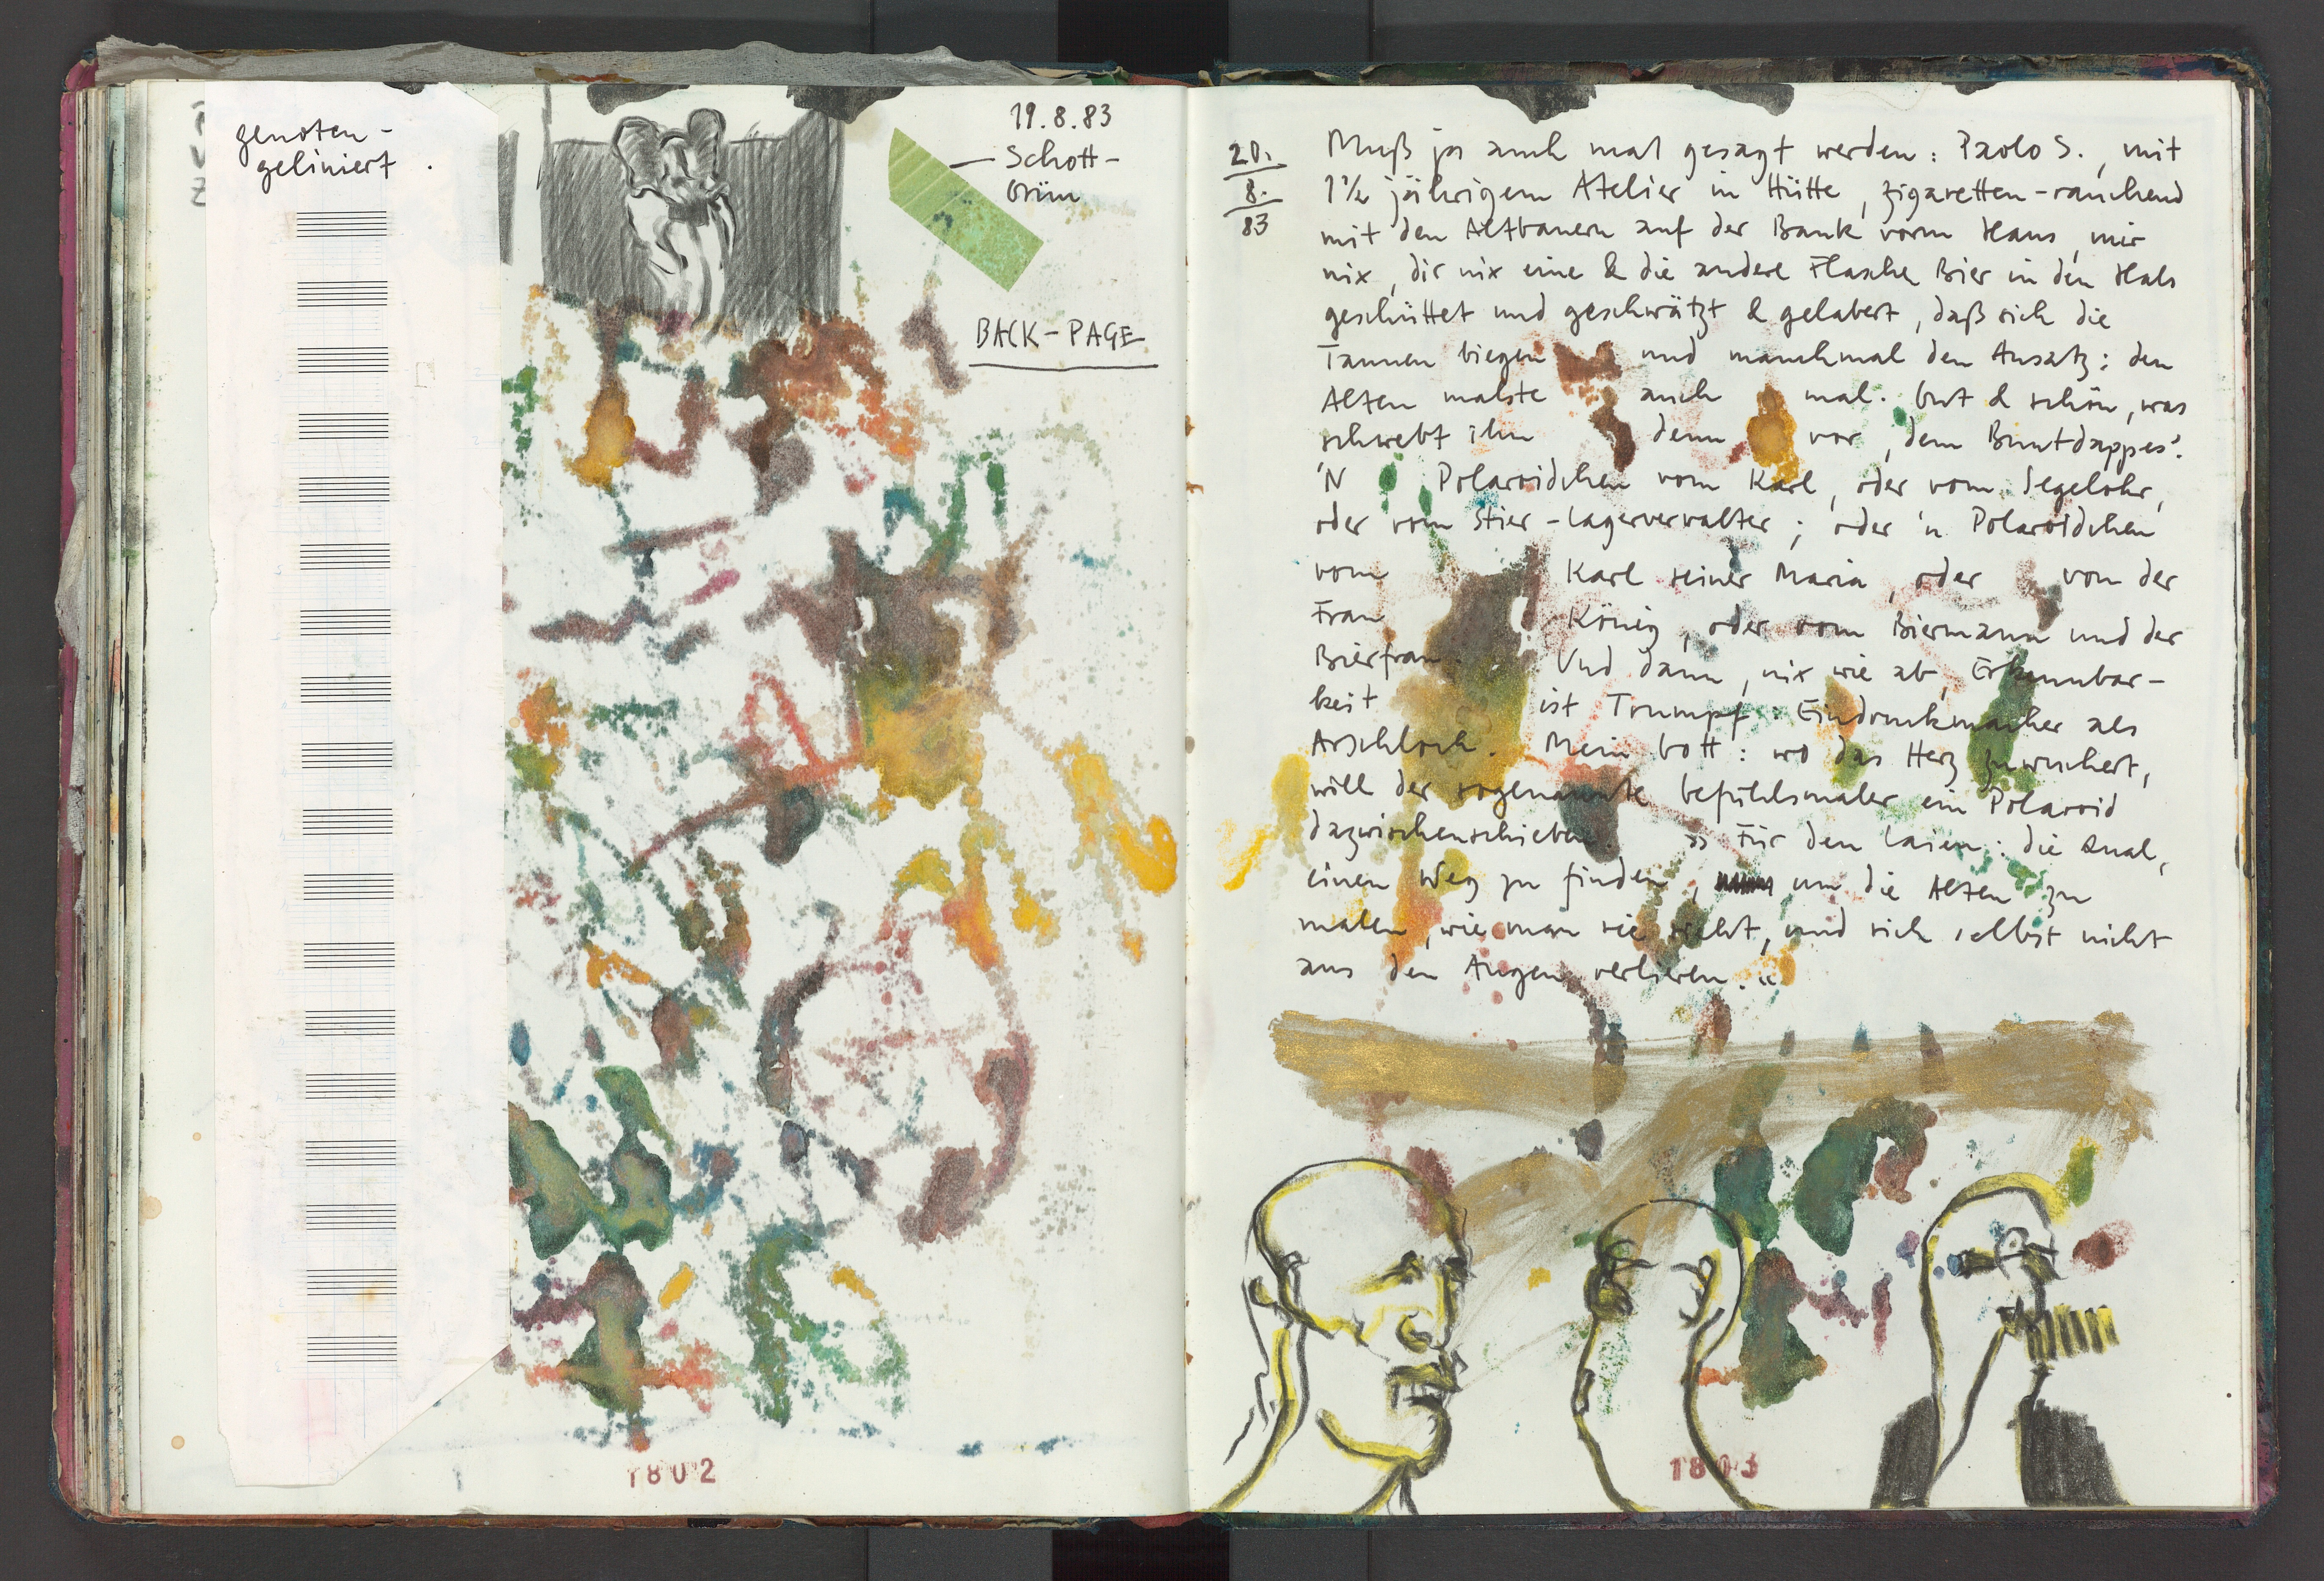 genoten-
geliniert.
19.8.83
Schott-
Grün
BACK-PAGE
1802
20.
8.
83
Muß ja auch mal gesagt werden: Paolo S., mit
1½ jährigem Atelier in Hütte, zigaretten-rauchend
mit den Altbauern auf der Bank vorm Haus, mir
nix, dir nix eine & die andere Flasche Bier in den Hals
geschüttet und geschwätzt & gelabert, daß sich die
Tannen biegen und manchmal den Ansatz: den
Alten malste auch mal. Gut & schön, was
schwebt ihm denn vor, dem Buntdappes?
'N Polaroidchen vom Karl, oder vom Segelohr,
oder vom Stier-Lagerverwalter; oder 'n Polaroidchen
vom Karl seiner Maria, oder von der
Frau König, oder vom Biermann und der
Bierfrau. Und dann, nix wie ab, Erkennbar-
keit ist Trumpf. Eindruckmacher als
Arschloch. Mein Gott: wo das Herz zuwuchert,
will der sogenannte Gefühlsmaler ein Polaroid
dazwischenschieben. »Für den Laien: die Qual,
einen Weg zu finden, um die Alten zu
malen, wie man sie sieht, und sich selbst nicht
aus den Augen verlieren.«
1803